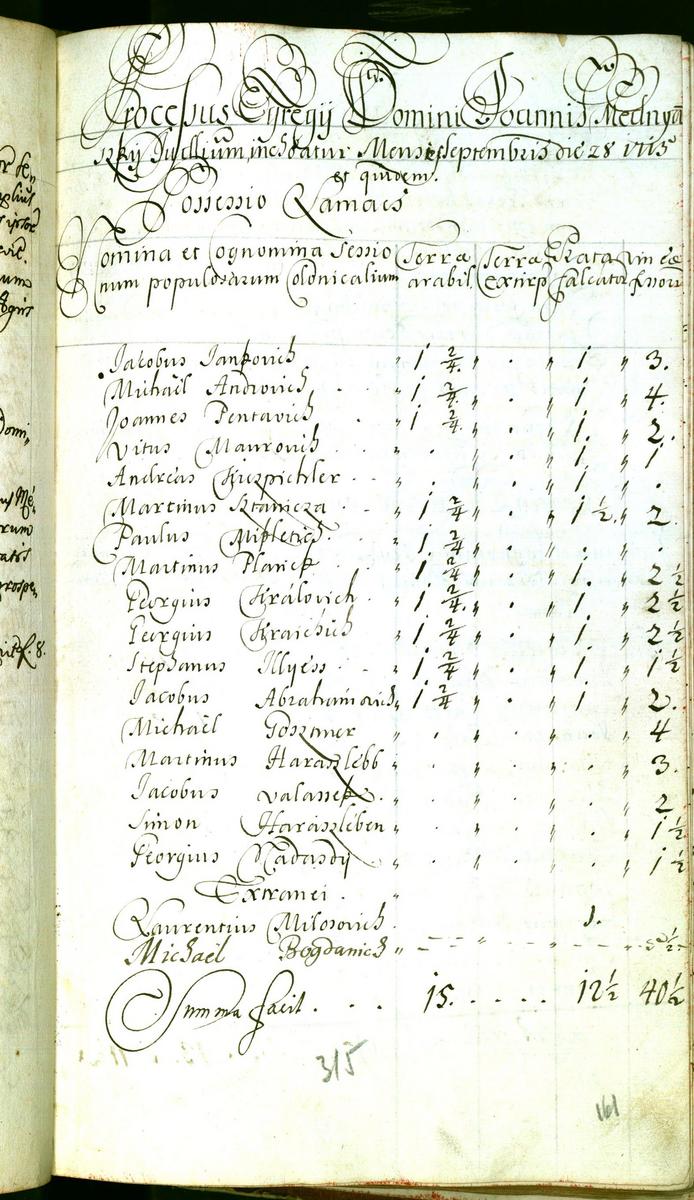 Processus Egregij Dni Domini Joannis Mednyan
szkij Judlium, inchoatur Mense Septembris die 28 1715
et quidem.
Possessio Lamacs
Nomina et Cognomina Sessio Terræ Terræ Prata Vineæ
num populosarum Colonicalium arabil. extirp. falcator. fossor
Jacobus Jankovich " 1 2/4 " . " 1 " 3.
Michaël Androvich . . " 1 2/4 " . " 1 " 4.
Joannes Pentavich . . " 1 2/4 " . " 1. " 2.
Vitus Maurovich " . " . " 1 " 1
Andreas Kiczpichler . . " . " . " 1 " .
Martinus Sztanicza . . " 1 2/4 " . " 1 1/2 " 2
Paulus Mipletich " 1. 2/4 " . " . " .
Martinus Planck . . " 1 2/4 " . " 1. " 2 1/2
Georgius Královich . " 1 2/4 " . " 1 " 2 1/2
Georgius Kraichich . " 1 2/4 " . " 1 " 2 1/2
Stephanus Illyess . . " 1 2/4 " . " 1 " 1 1/2
Jacobus Abrahamovich " 1 2/4 " . " 1 " 2.
Michaël Gosztner " . " . " . " 4
Martinus Haraszlebb " . " . " . " 3.
Jacobus Valassek . " . " . " . " 2
Simon Haraszleben " . " . " . " 1 1/2
Georgius Nadasdy " . " . " . " 1 1/2
Extranei . "
Laurentius Milosovich. 1.
Michael Bogdanich " 5 1/2
Summa facit . . . 15. . . . . 12 1/2 40 1/2
315
161